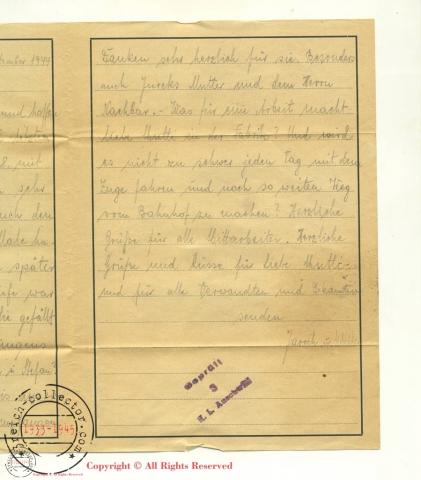 tember 1944
Danken sehr herzlich für sie. Besonders
auch Jureks Mutter und dem Herrn
Nachbar. - Was für eine Arbeit macht
liebe Mutti in der Fabrik? Und wird
es nicht zu schwer jeden Tag mit dem
Zuge fahren und noch so weiten Weg
vom Bahnhof zu machen? Herzliche
Grüße für alle Mitarbeiter. Herzliche
Grüße und Küsse für liebe Mutti
und für alle Verwandten und
senden
und hoffen
mit
sehr
auch den
später
war
die gefällt
Geprüft
3
K. L. Auschwitz
reich-collector.com
1933-1945
Copyright © All Rights Reserved